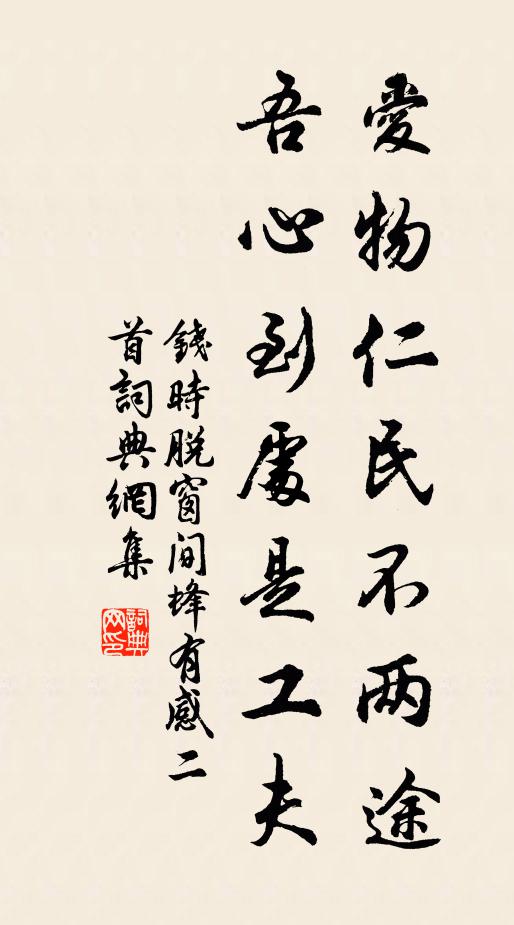 愛物仁民不两途
吾心到處是工夫
錢時脱窗间蜂有感二
首詞典網集
詞典
网印